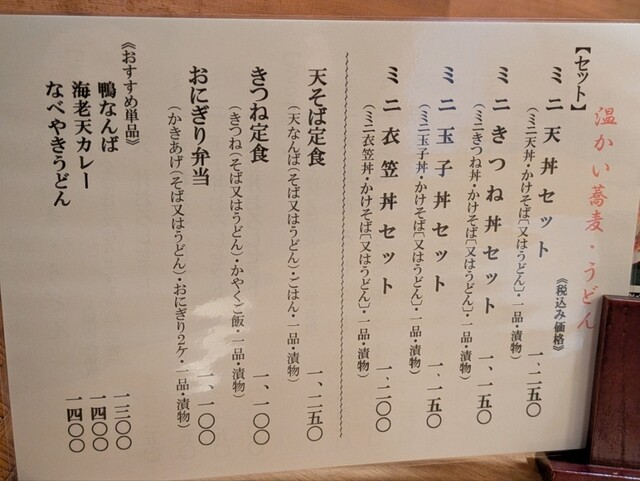 温かい蕎麦・うどん
【セット】
《税込み価格》
ミニ天丼セット 一、二五〇
（ミニ天丼・かけそば〔又はうどん〕・一品・漬物）
ミニきつね丼セット 一、一五〇
（ミニきつね丼・かけそば〔又はうどん〕・一品・漬物）
ミニ玉子丼セット 一、一五〇
（ミニ玉子丼・かけそば〔又はうどん〕・一品・漬物）
ミニ衣笠丼セット 一、二〇〇
（ミニ衣笠丼・かけそば〔又はうどん〕・一品・漬物）
天そば定食 一、二五〇
（天なんば（そば又はうどん）・ごはん・一品・漬物）
きつね定食 一、一〇〇
（きつね（そば又はうどん）・かやくご飯・一品・漬物）
おにぎり弁当 一、一〇〇
（かきあげ（そば又はうどん）・おにぎり２ケ・一品・漬物）
《おすすめ単品》
鴨なんば 一三〇〇
海老天カレー 一四〇〇
なべやきうどん 一四〇〇